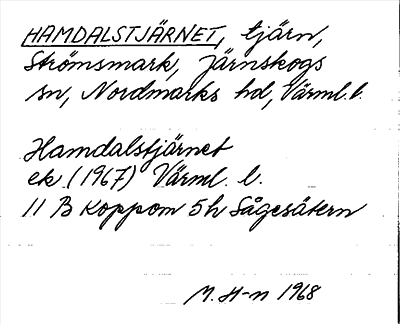 HAMDALSTJÄRNET, tjärn,
Strömsmark, Järnskogs
sn, Nordmarks hd, Värml. l.
Hamdalstjärnet
ek. (1967) Värml. l.
11 B Koppom 5h Sågesätern
M. H-n 1968